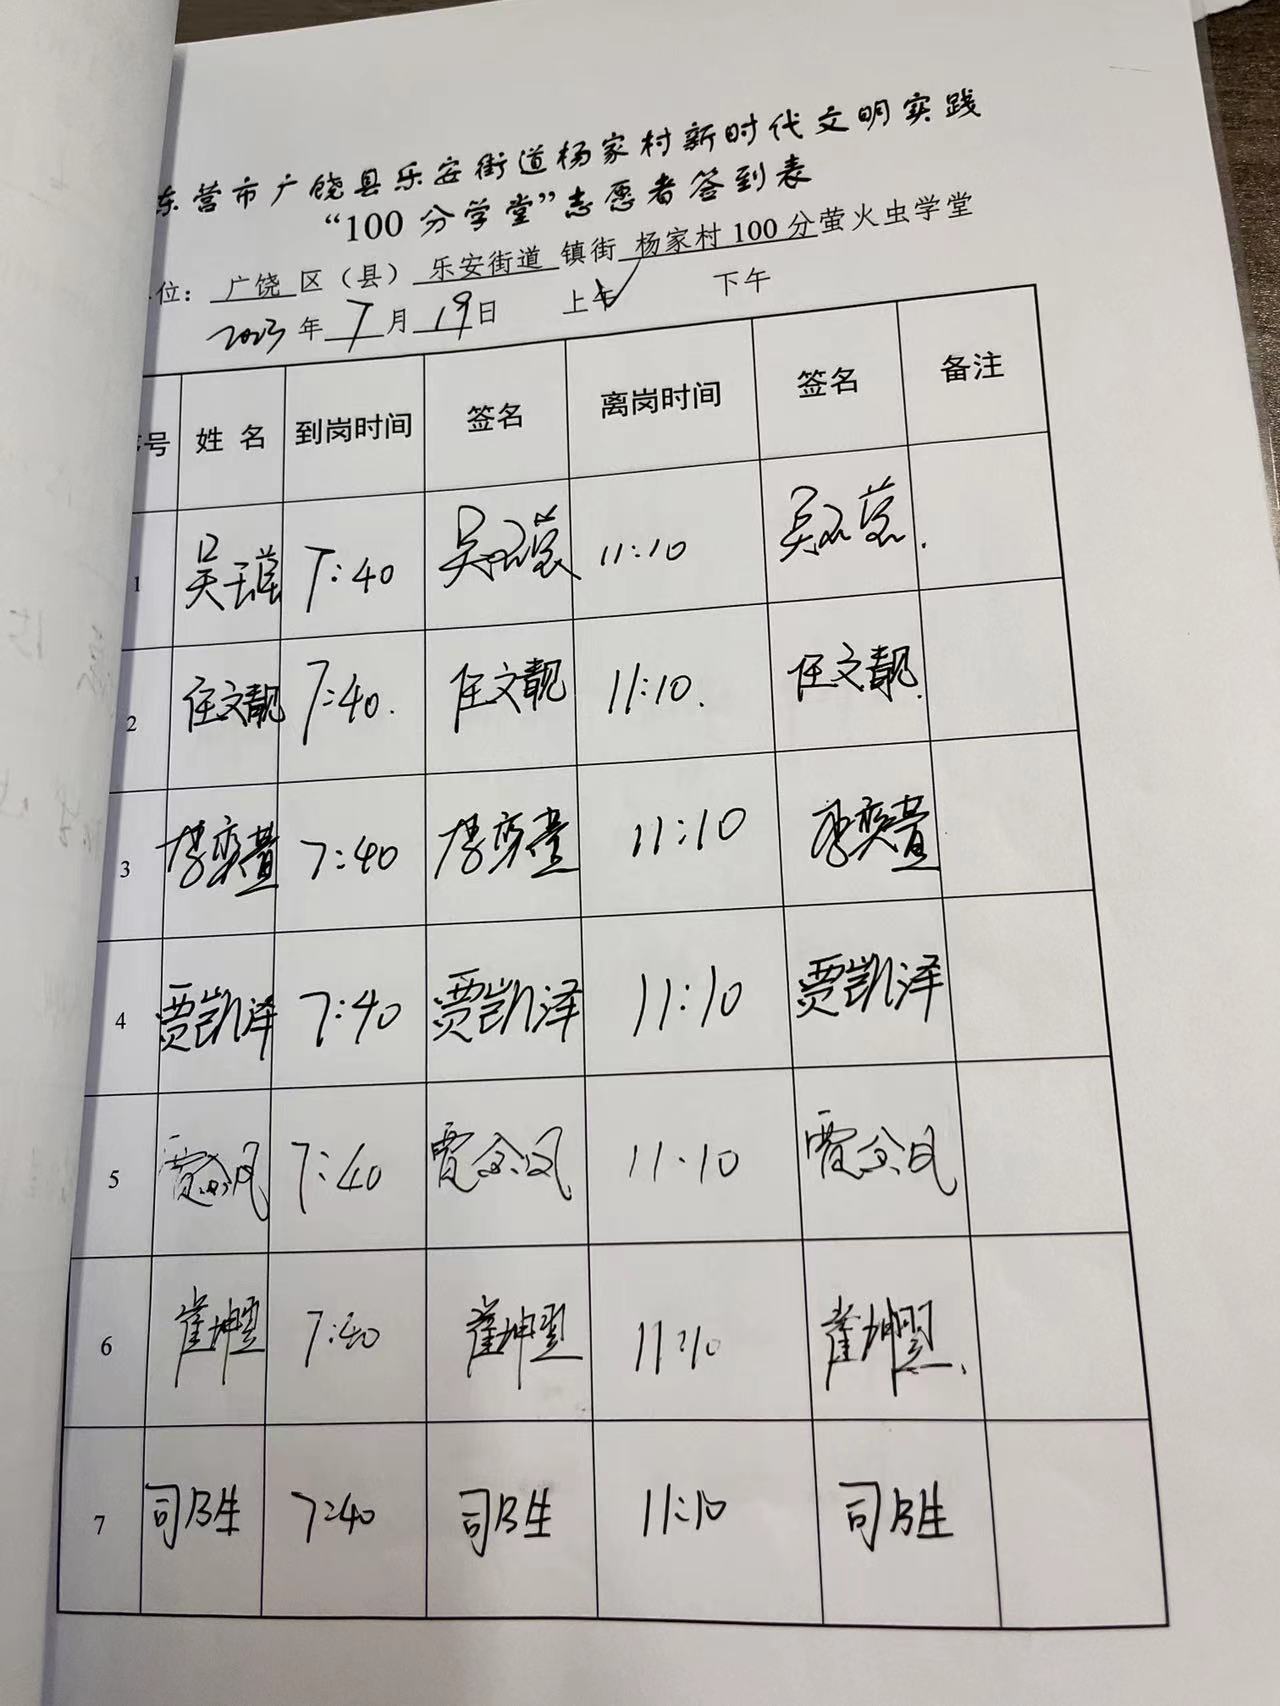 东营市广饶县乐安街道杨家村新时代文明实践
“100分学堂”志愿者签到表
位：广饶区（县）乐安街道镇街杨家村100分萤火虫学堂
2023年7月19日 上午✓ 下午
号 姓名 到岗时间 签名 离岗时间 签名 备注
1 吴 7:40 吴 11:10 吴
2 任文靓 7:40. 任文靓 11:10. 任文靓.
3 李奕萱 7:40 李奕萱 11:10 李奕萱
4 贾凯泽 7:40 贾凯泽 11:10 贾凯泽
5 贾 7:40 贾 11:10 贾
6 崔坤翌 7:40 崔坤翌 11:10 崔坤翌.
7 司 生 7:40 司 生 11:10 司 生